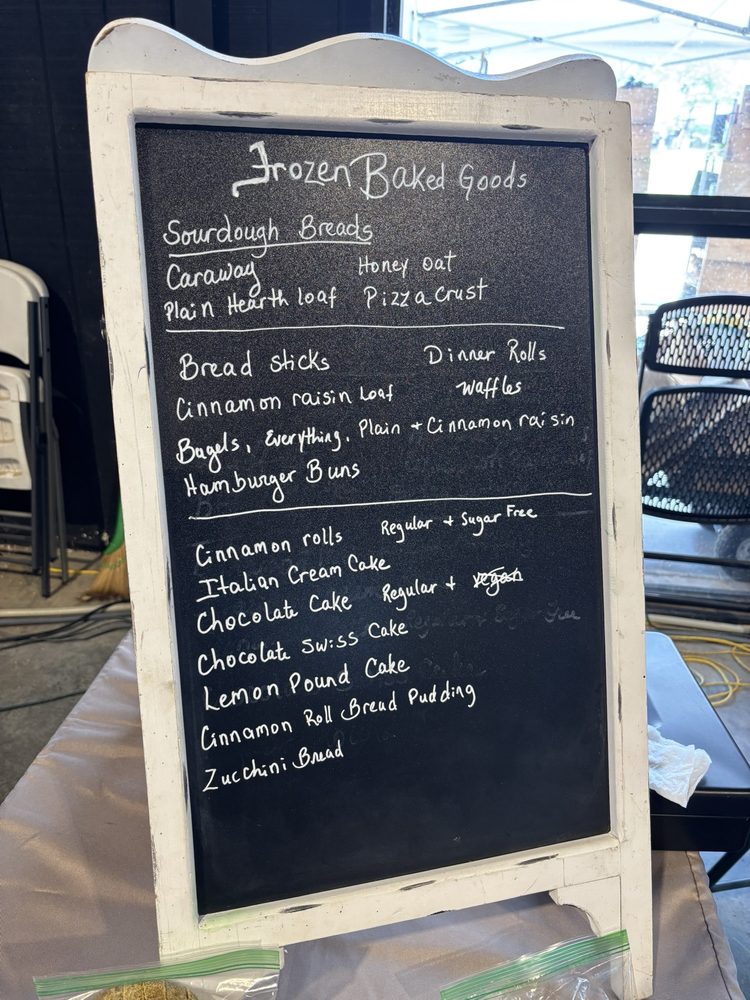 Frozen Baked Goods
Sourdough Breads
Caraway Honey oat
Plain Hearth loaf Pizza crust
Bread sticks Dinner Rolls
Cinnamon raisin Loaf Waffles
Bagels, Everything, Plain + Cinnamon raisin
Hamburger Buns
Cinnamon rolls Regular + Sugar Free
Italian Cream Cake
Chocolate Cake Regular + vegan
Chocolate Swiss Cake
Lemon Pound Cake
Cinnamon Roll Bread Pudding
Zucchini Bread